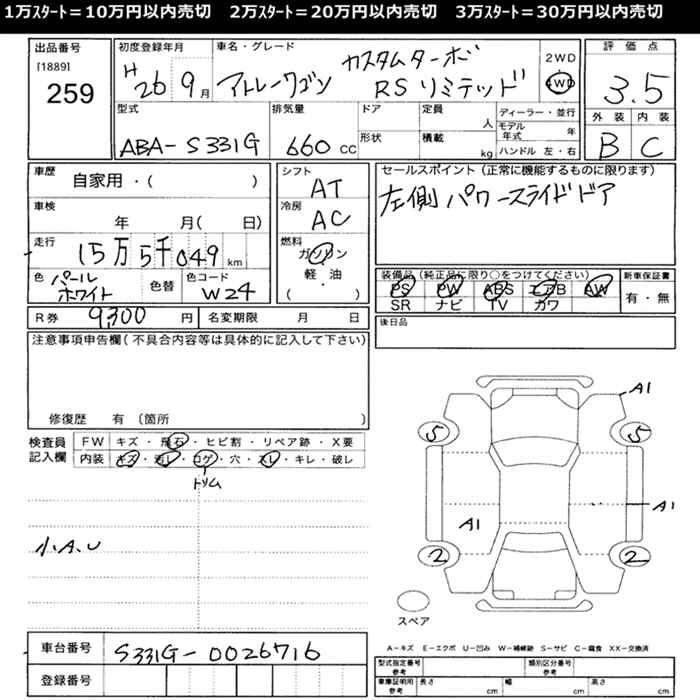 1万ｽﾀｰﾄ＝10万円以内売切　2万ｽﾀｰﾄ＝20万円以内売切　3万ｽﾀｰﾄ＝30万円以内売切
出品番号
[1889]
259
初度登録年月
H26 9月
車名・グレード
アトレーワゴン カスタムターボ
RS リミテッド
2WD
4WD
評価点
3.5
外装 内装
B C
型式
ABA-S331G
排気量
660 cc
ドア
形状
定員
人
積載
kg
ディーラー・並行
モデル年式 年
ハンドル 左・右
車歴
自家用・( )
車検
年 月( 日)
走行
15万5千049 km
色
パールホワイト
色替
色コード
W24
シフト
AT
冷房
AC
燃料
ガソリン
軽・油
( ・ )
セールスポイント(正常に機能するものに限ります)
左側パワースライドドア
装備品(純正品に限り○をつけてください)
PS PW ABS エアB AW
SR ナビ TV カワ
新車保証書
有・無
R券 9,300 円
名変期限 月 日
後日品
注意事項申告欄(不具合内容等は具体的に記入して下さい)
修復歴 有 (箇所 )
検査員記入欄
FW キズ・飛石・ヒビ割・リペア跡・X要
内装 キズ・汚レ・コゲ・穴・スレ・キレ・破レ
トリム
小A.U
A1
5 5
A1
A1
2 2
スペア
A-キズ E-エクボ U-凹み W-補修跡 S-サビ C-腐食 XX-交換済
車台番号
S331G-0026716
登録番号
型式指定番号
参考
類別区分番号
参考
車庫証明用
参考
長さ cm
幅 cm
高さ cm